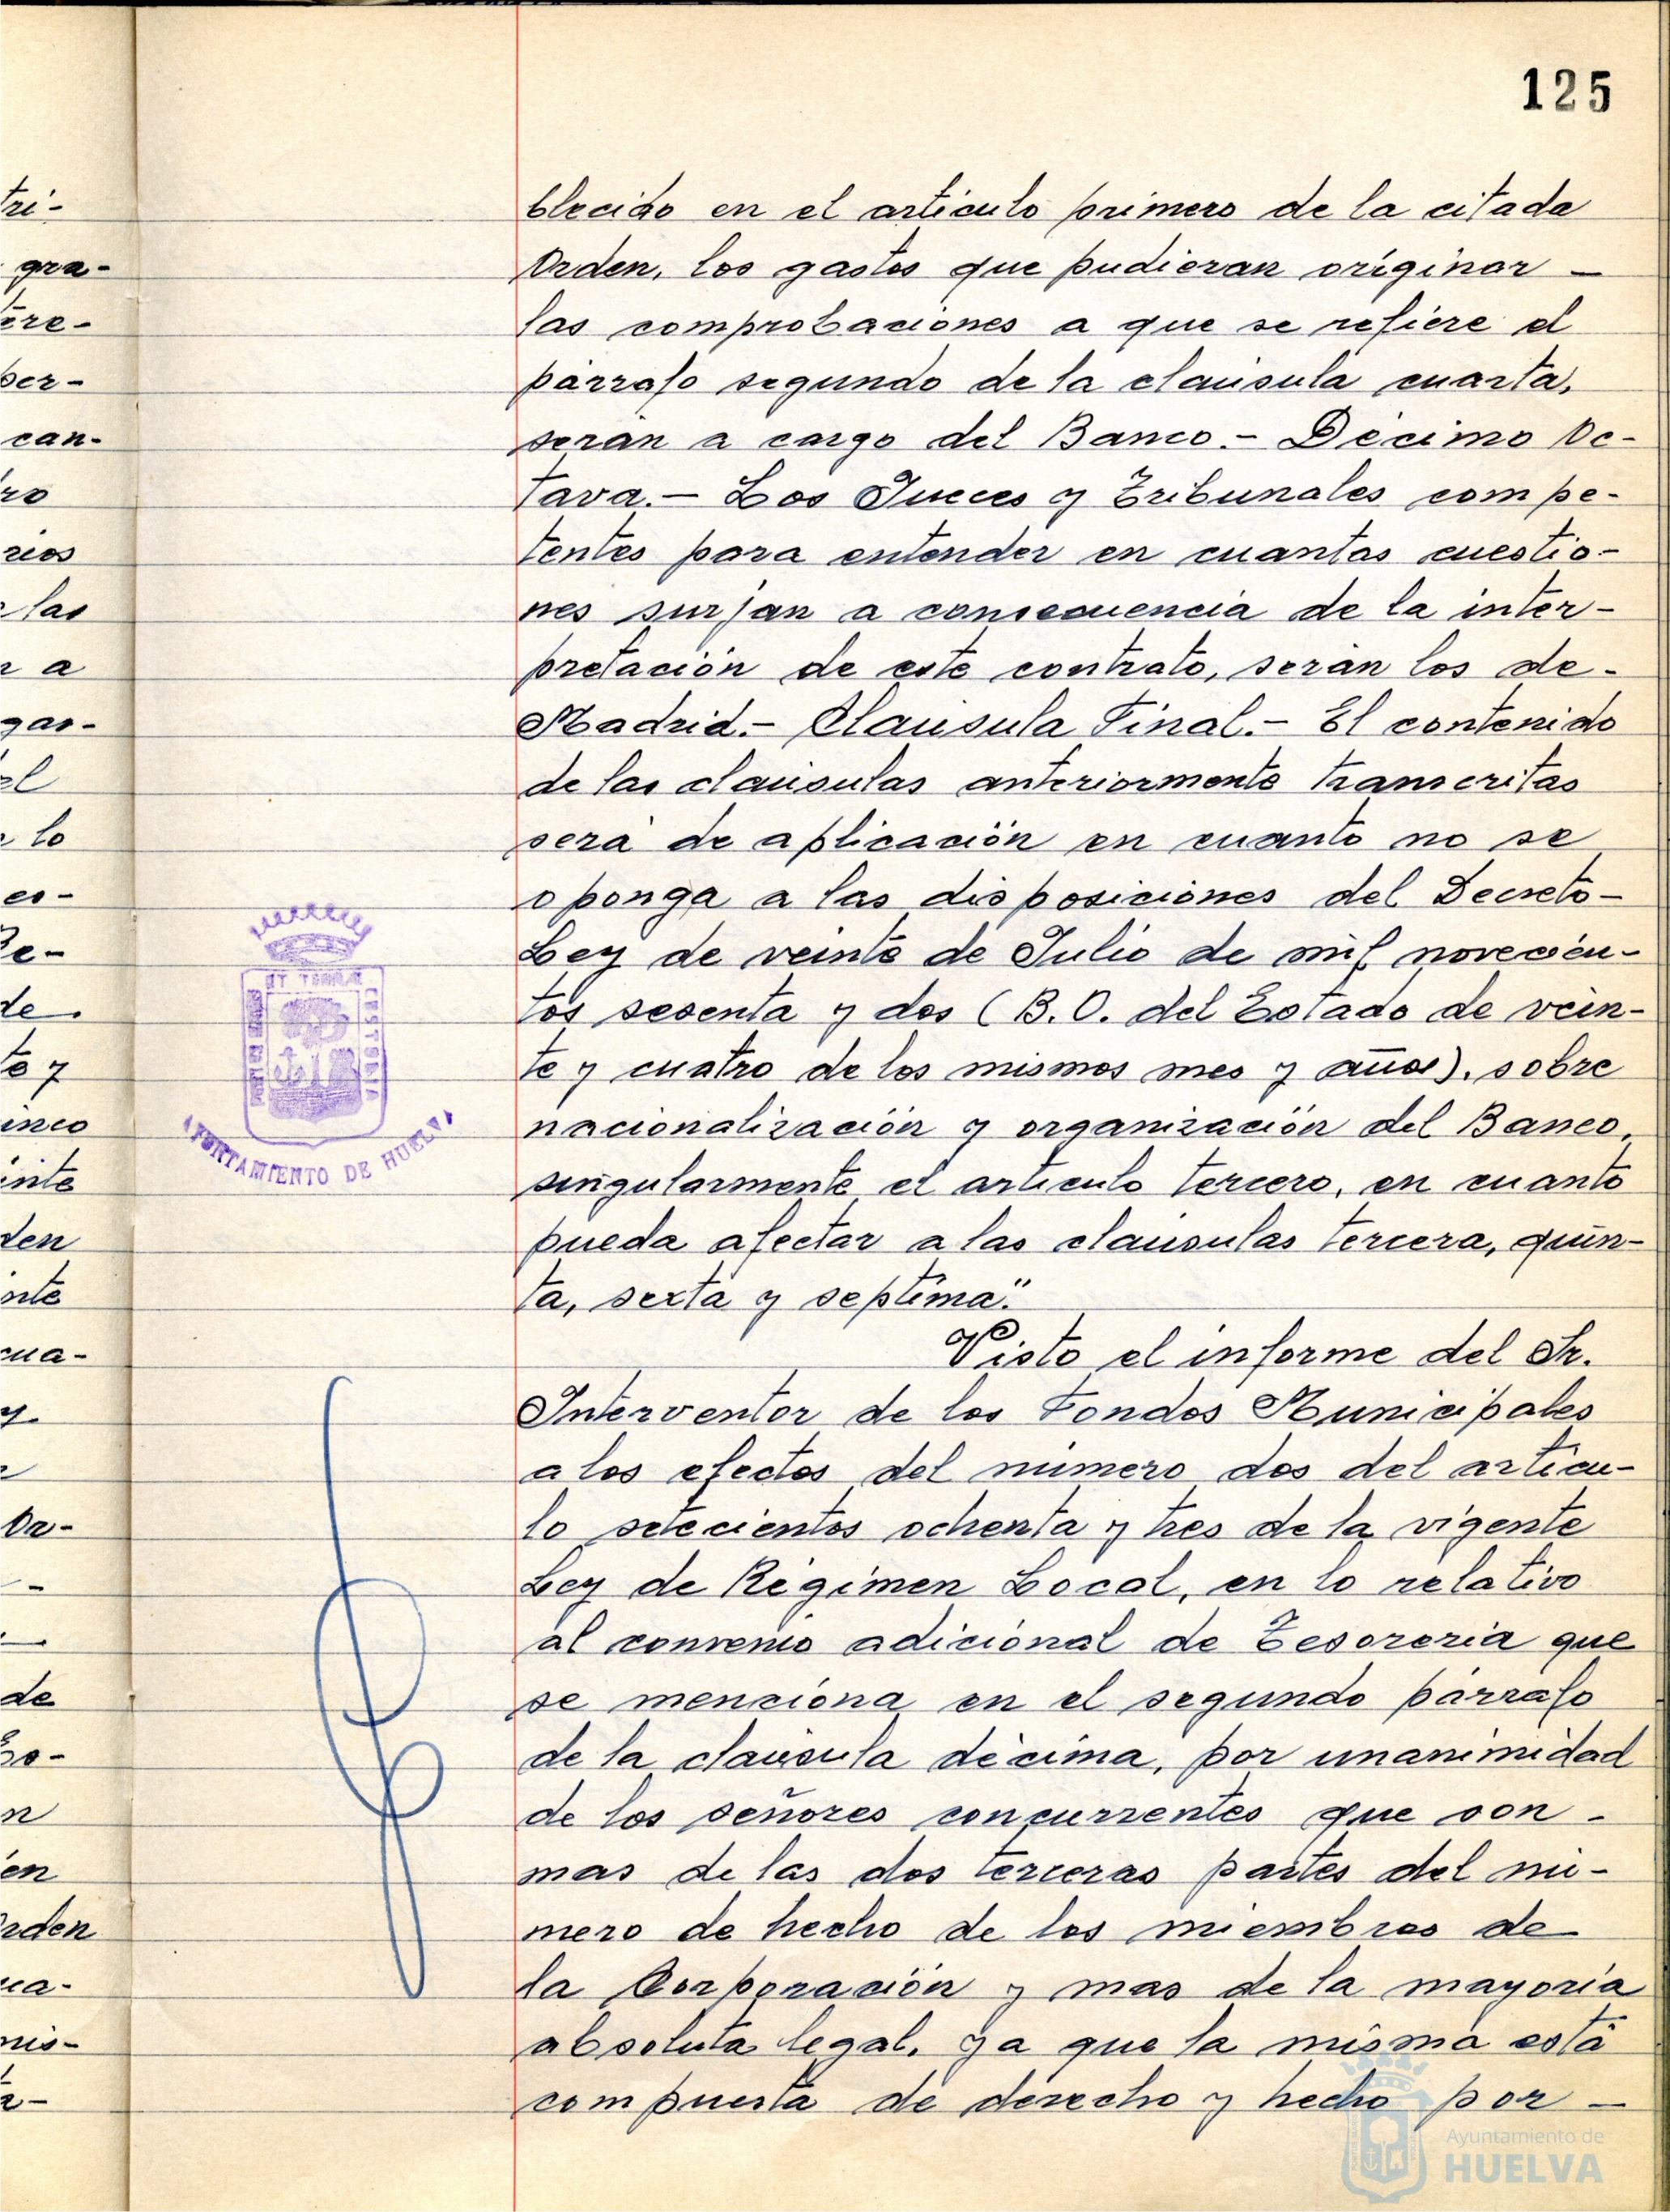 125
blecido en el artículo primero de la citada
Orden, los gastos que pudieran originar —
las comprobaciones a que se refiere el
párrafo segundo de la clausula cuarta,
serán a cargo del Banco.- Decimo Oc-
tava.- Los Jueces y Tribunales compe-
tentes para entender en cuantas cuestio-
nes surjan a consecuencia de la inter-
pretación de este contrato, serán los de -
Madrid.- Clausula Final.- El contenido
de las clausulas anteriormente transcritas
será de aplicación en cuanto no se
oponga a las disposiciones del Decreto-
Ley de veinte de Julio de mil novecien-
tos sesenta y dos (B.O. del Estado de vein-
te y cuatro de los mismos mes y año), sobre
nacionalización y organización del Banco,
singularmente el artículo tercero, en cuanto
pueda afectar a las clausulas tercera, quin-
ta, sexta y septima."
Visto el informe del Sr.
Interventor de los Fondos Municipales
a los efectos del número dos del artícu-
lo setecientos ochenta y tres de la vigente
Ley de Régimen Local, en lo relativo
al convenio adicional de Tesorería que
se menciona en el segundo párrafo
de la clausula décima, por unanimidad
de los señores concurrentes que son -
mas de las dos terceras partes del nú-
mero de hecho de los miembros de
la Corporación y mas de la mayoría
absoluta legal, ya que la misma está
compuesta de derecho y hecho por —
AYUNTAMIENTO DE HUELVA
Ayuntamiento de
HUELVA